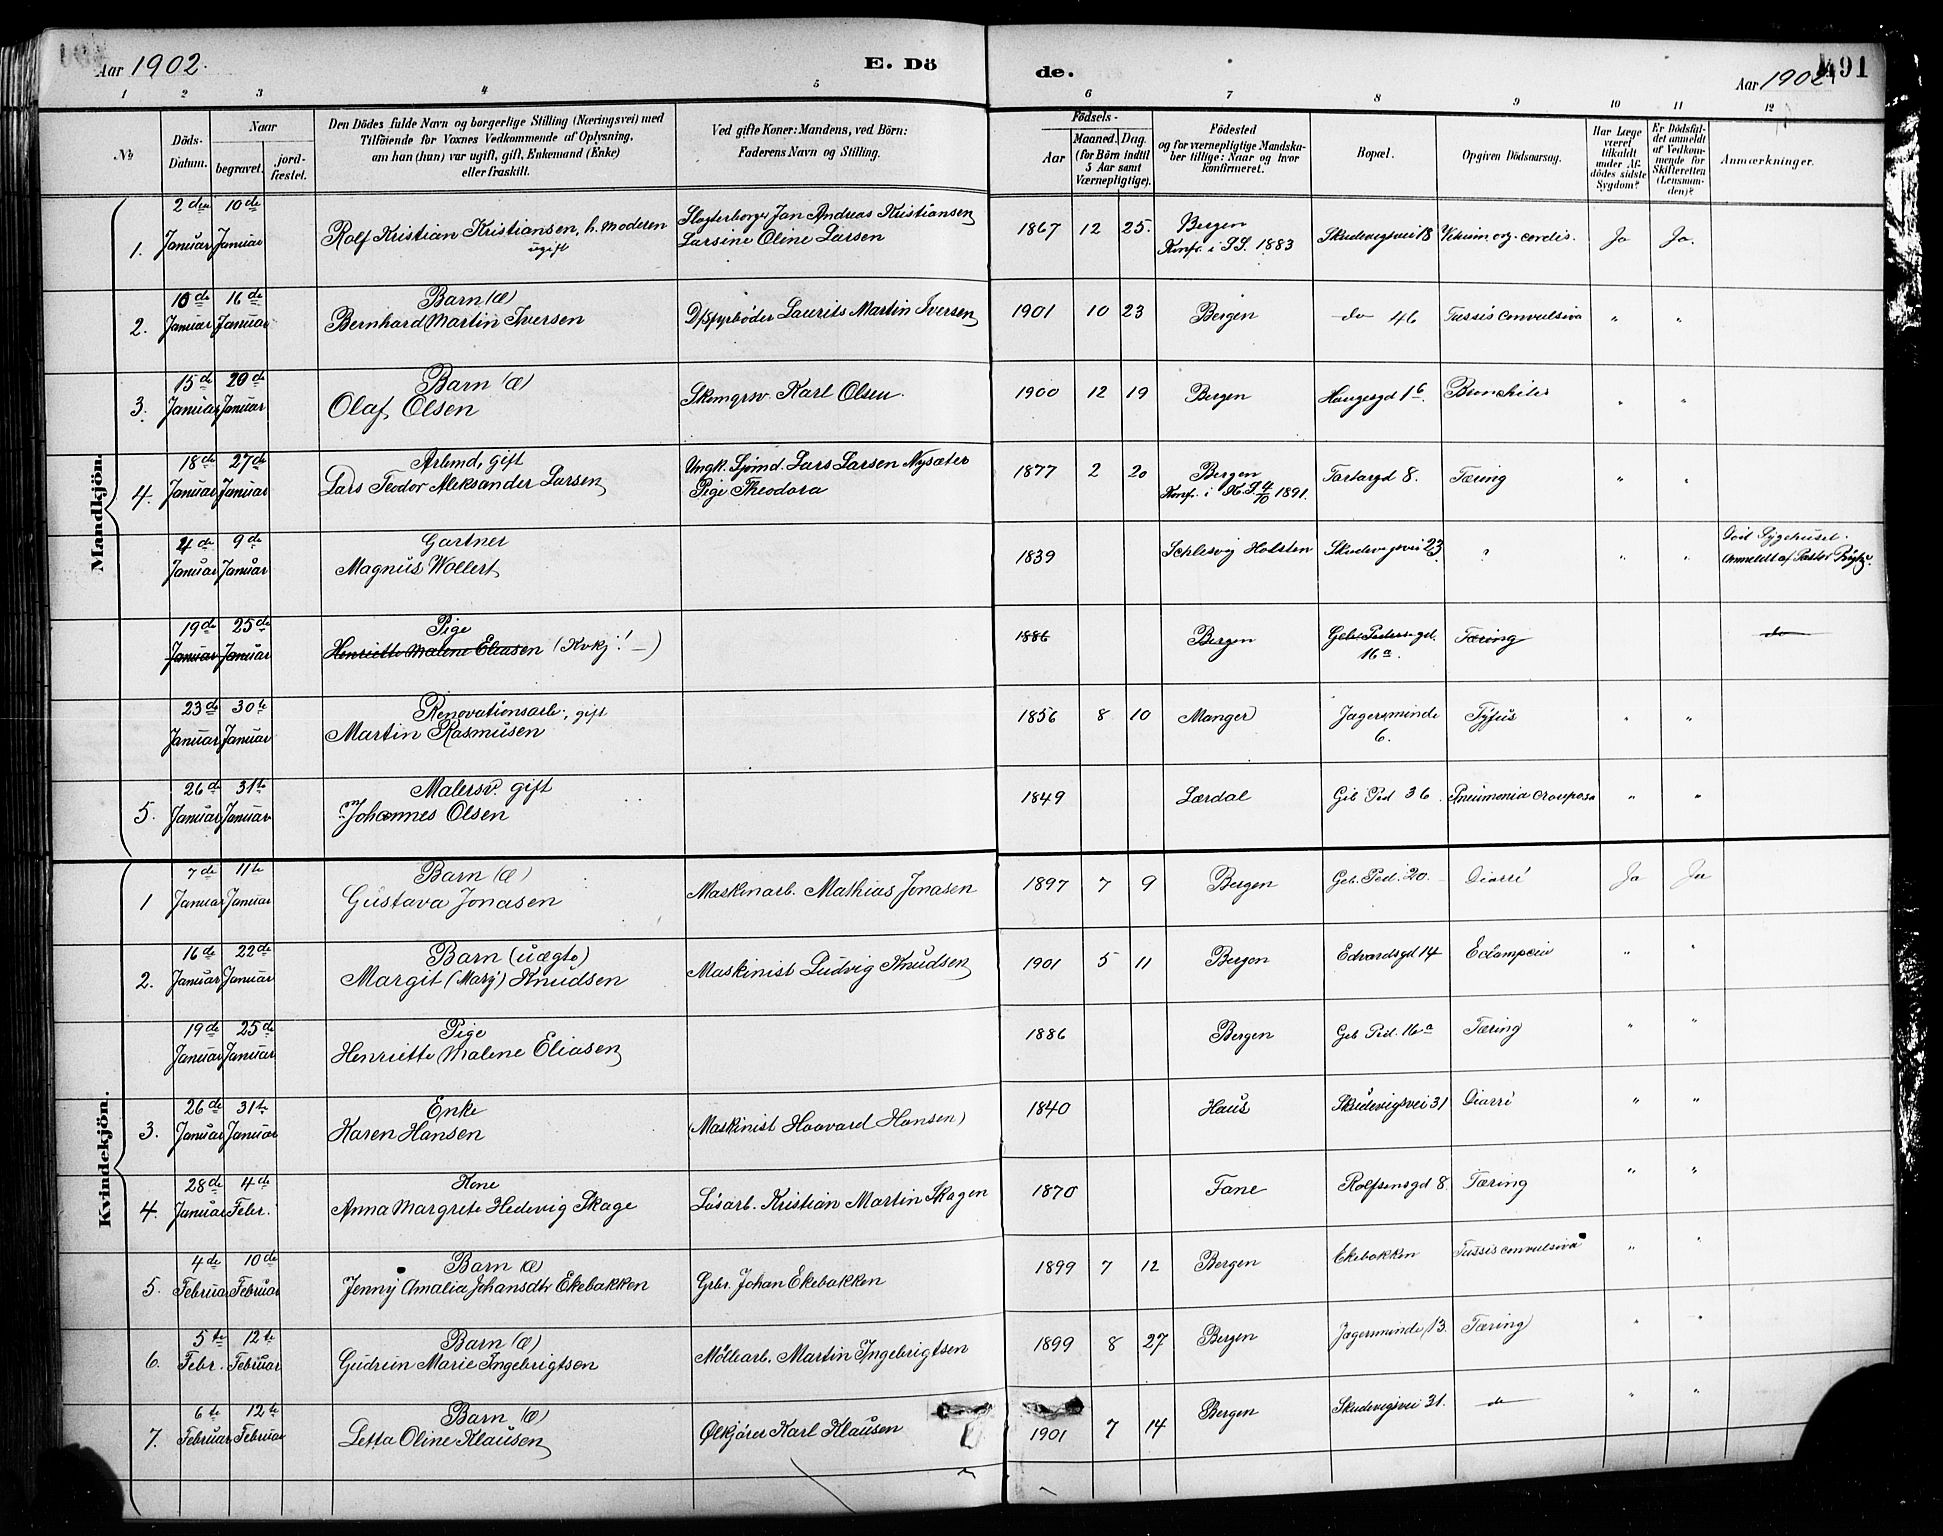 Aar 1902.
E. Dö
de.
Aar 1902
491
1 2 3 4 5 6 7 8 9 10 11 12
No
Döds-Datum.
Naar
begravet.
jord-fæstet.
Den Dödes fulde Navn og borgerlige Stilling (Næringsvei) med
Tilföiende for Voxnes Vedkommende af Oplysning,
om han (hun) var ugift, gift, Enkemand (Enke)
eller fraskilt.
Ved gifte Koner: Mandens, ved Börn:
Faderens Navn og Stilling.
Födsels-
Aar
Maaned. Dag.
(for Börn indtil
5 Aar samt
Værnepligtige).
Födested
og for værnepligtige Mandska-
ber tillige: Naar og hvor
konfirmeret.
Bopæl.
Opgiven Dödsaarsag.
Har Læge
været
tilkaldt
under Af-
dödes sidste
Sygdom?
Er Dödsfal-
det anmeldt
af Vedkom-
mende for
Skifteretten
(Lensman-
den)?
Anmærkninger.
Mandkjön.
1. 2den Januar 10de Januar Rolf Kristian Kristiansen, h. Moderen ugift Slagterborger Jan Andreas Kristiansen Larsine Oline Larsen 1867 12 25. Bergen Konf. i 1883 Skudevigsvei 18 Vitium org. cordis. Ja Ja.
2. 10de Januar 16de Januar Barn (æ) Bernhard Martin Iversen D/Sfyrböder Laurits Martin Iversen 1901 10 23 Bergen do 46 Tussis convulsiva " "
3. 15de Januar 20de Januar Barn (æ) Olaf Olsen Skomgrsv. Karl Olsen. 1900 12 19 Bergen Haugesgd 16 Bronchiter " "
4. 18de Januar 27de Januar Arbmd, gift Lars Teodor Aleksander Larsen Ungk. Sjömd. Lars Larsen Nysæter Pige Theodora 1877 2 20 Bergen Konf. i 4/10 1891. Tartargd 8. Tæring " "
4de Januar 9de Januar Gartner Magnus Wollert 1839 Schlesvig Holsten Skudevigsvei 23 ? " " Död Sygehuset. Anmeldt af Pastor
19de Januar 25de Januar Pige Henriette Malene Eliasen (Kvkj! —) 1886 Bergen Geb. Pedersgd. 16a. Tæring do
23de Januar 30te Januar Renovationsarb., gift Martin Rasmusen 1856 8 10 Manger Jagersminde 6. Tyfus " "
5. 26de Januar 31te Januar Malersv. gift Johannes Olsen 1849 Lærdal Geb Ped 36 Pneumonia crouposa " "
Kvindekjön.
1 7de Januar 11te Januar Barn (æ) Gustava Jonasen Maskinarb. Mathias Jonasen 1897 7 9 Bergen Geb. Ped. 20. Diarré Ja Ja
2. 16de Januar 22de Januar Barn (uægte) Margit (Marg) Knudsen Maskinist Ludvig Knudsen 1901 5 11 Bergen Edvardsgd 14 Eclampsia " "
19de Januar 25de Januar Pige Henriette Malene Eliasen 1886 Bergen Geb Ped. 16a Tæring " "
3. 26de Januar 31te Januar Enke Karen Hansen (Maskinist Haavard Hansen) 1840 Haus Skudevigsvei 31 Diarré " "
4. 28de Januar 4de Febr. Kone Anna Margrete Hedevig Skage Lösarb. Kristian Martin Skagen 1870 Fane Rolfsensgd 8. Tæring " "
5. 4de Februar 10de Februar Barn (æ) Jenny Amalia Johansdtr Ekebakken Grbr. Johan Ekebakken 1899 7 12 Bergen Ekebakken Tussis convulsiva " "
6. 5te Febr. 12te Februar Barn (æ) Gudrun Marie Ingebrigtsen Möllearb. Martin Ingebrigtsen 1899 8 27 Bergen Jagersminde 13. Tæring " "
7. 6te Februar 12te Februar Barn (æ) Letta Oline Klausen Ølkjörer Karl Klausen 1901 7 14 Bergen Skudevigsvei 31. do " "